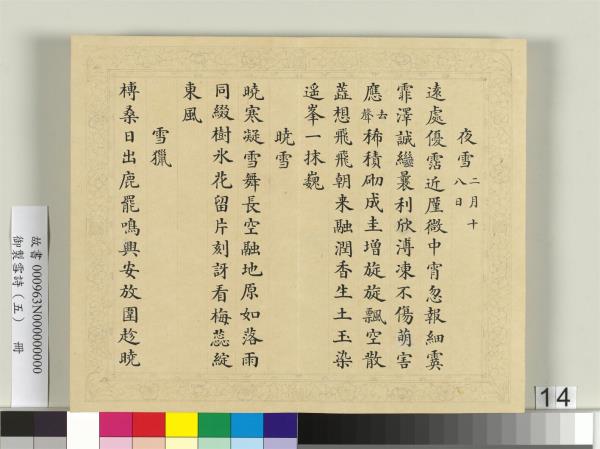 夜雪 二月十八日
遠處優霑近厪微中宵忽報細霙
霏澤誠繼曩利欣溥凍不傷萌害
應去聲稀積砌成圭增旋旋飄空散
蕋想飛飛朝来融潤香生土玉染
遥峯一抹巍
曉雪
曉寒凝雪舞長空融地原如落雨
同綴樹氷花留片刻訝看梅蕊綻
東風
雪獵
榑桑日出鹿罷鳴興安放圍趁曉
故書 000963N000000000
御製雪詩(五) 冊
14